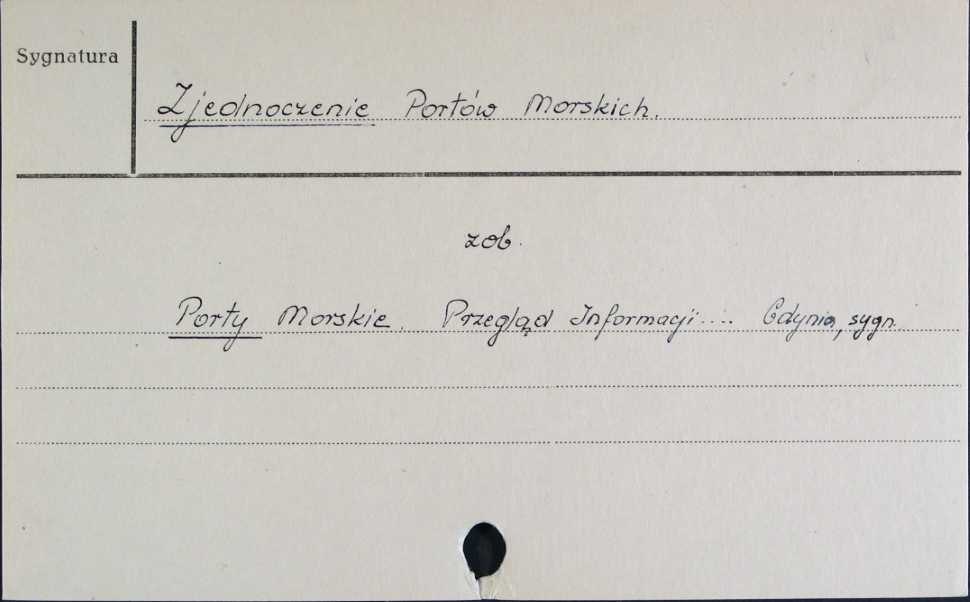 Sygnatura
Zjednoczenie Portów Morskich.
zob.
Porty Morskie. Przegląd Informacji.... Gdynia, sygn.